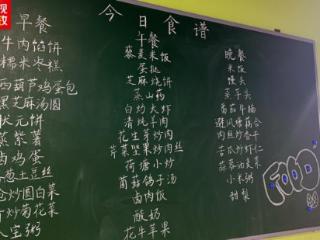 今日食谱
早餐
牛肉馅饼
糯米枣糕
西葫芦鸡蛋包
黑芝麻汤圆
状元饼
蒸紫薯
卤鸡蛋
土豆丝
炒圆白菜
炒菊花菜
八宝粥
午餐
藜麦米饭
蛋挞
芝麻烧饼
蒸山药
白灼大虾
清炖羊肉
花生芽炒肉
芹菜坚果炒肉
荷塘小炒
菌菇鸽子汤
卤肉饭
酸奶
花牛苹果
晚餐
米饭
馒头
蒸芋头
番茄牛腩
避风塘
肉丝炒香干
苦瓜炒虾仁
蒜蓉油麦菜
小米粥
甜梨
FOOD